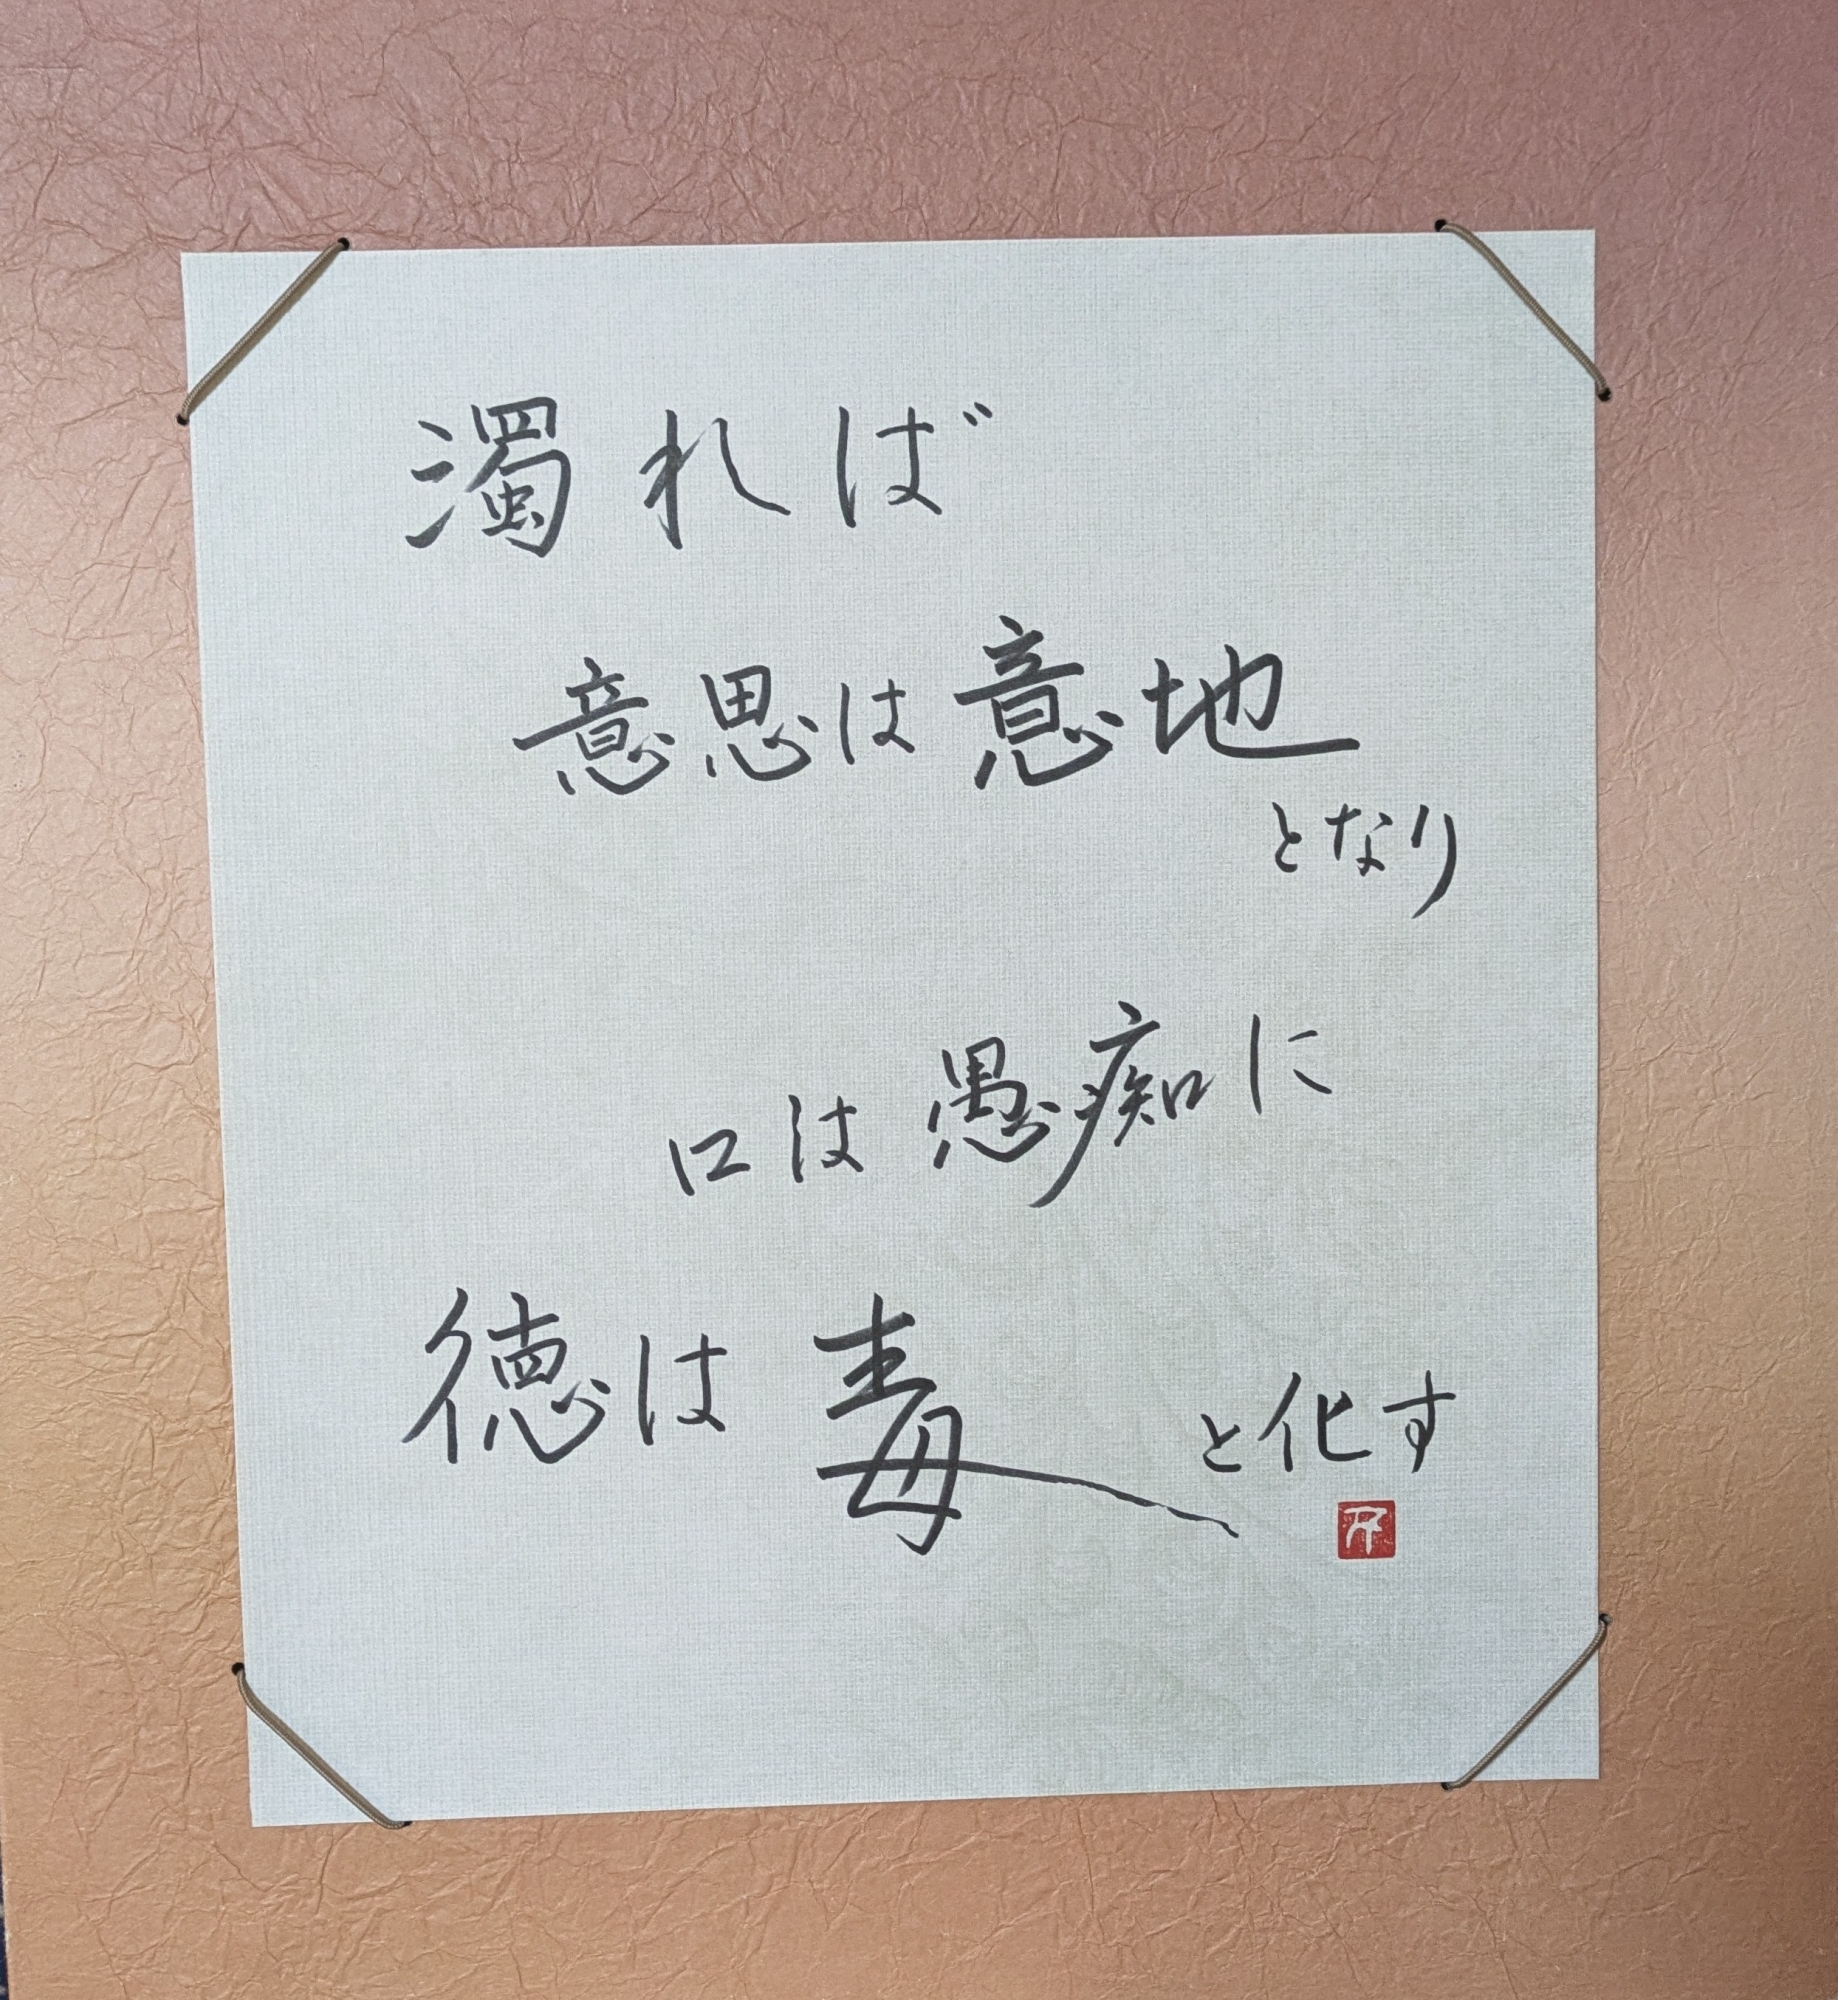 濁れば
意思は意地
となり
口は愚痴に
徳は毒と化す